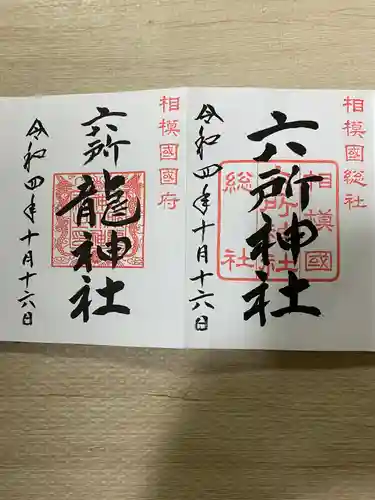 相模國総社
六所神社
相模國
六所神社
総社
令和四年十月十六日
相模國國府
六所
龍神社
令和四年十月十六日